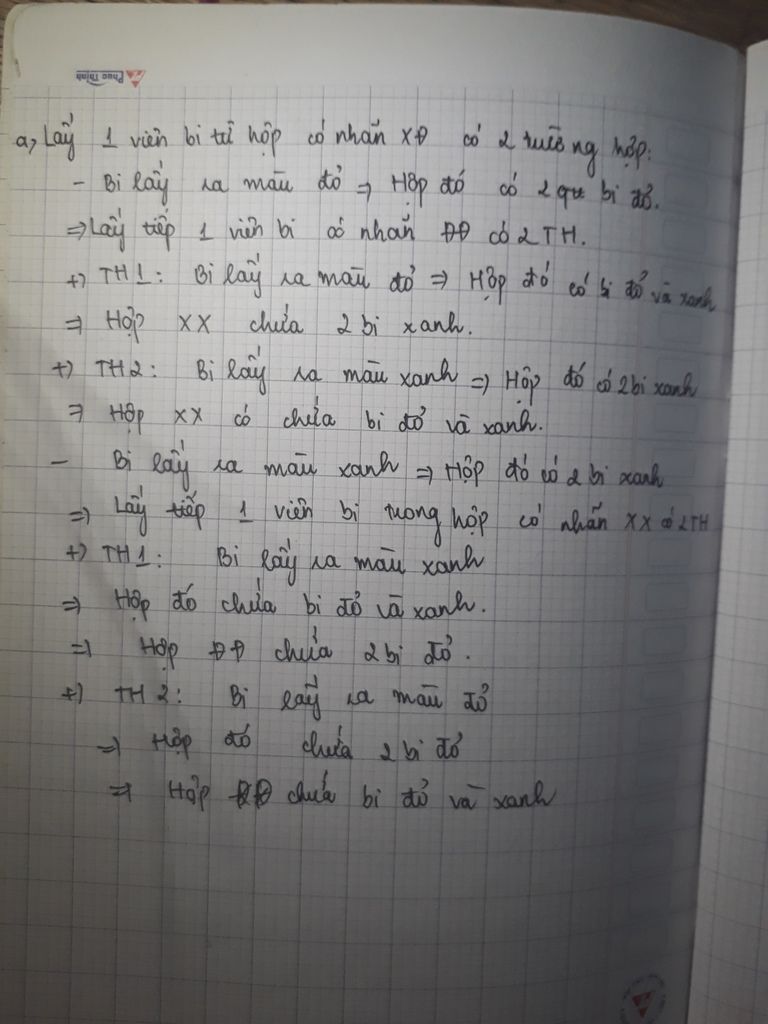 Phúc Thịnh
a, Lấy 1 viên bi từ hộp có nhãn XĐ có 2 trường hợp:
- Bi lấy ra màu đỏ => Hộp đó có 2 quả bi đỏ.
=> Lấy tiếp 1 viên bi có nhãn ĐĐ có 2 TH.
+) TH1: Bi lấy ra màu đỏ => Hộp đó có bi đỏ và xanh
=> Hộp XX chứa 2 bi xanh.
+) TH2: Bi lấy ra màu xanh => Hộp đó có 2 bi xanh
=> Hộp XX có chứa bi đỏ và xanh.
- Bi lấy ra màu xanh => Hộp đó có 2 bi xanh
=> Lấy tiếp 1 viên bi trong hộp có nhãn XX có 2TH
+) TH1: Bi lấy ra màu xanh
=> Hộp đó chứa bi đỏ và xanh.
=> Hộp ĐĐ chứa 2 bi đỏ.
+) TH2: Bi lấy ra màu đỏ
=> Hộp đó chứa 2 bi đỏ
=> Hộp ĐĐ chứa bi đỏ và xanh